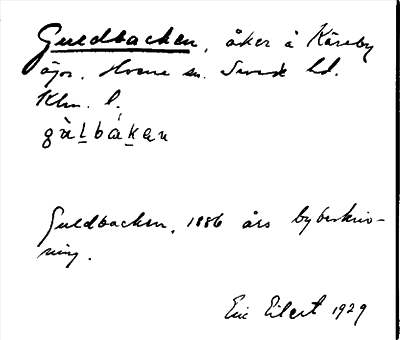 Guldbacken, åker å Käreby
ägor. Horne sn. Sevede hd.
Klm. l.
gàlbákan
Guldbacken, 1886 års bybeskriv-
ning.
Eric Eilert 1929